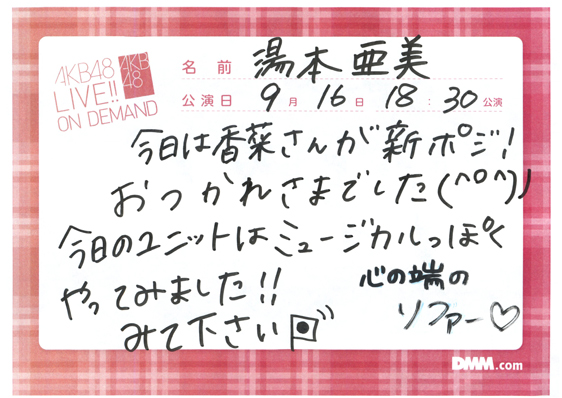 AKB48
LIVE!!
ON DEMAND
AKB
48
名前 湯本亜美
公演日 9月16日 18:30公演
今日は香菜さんが新ポジ!
おつかれさまでした(^o^)丿
今日のユニットはミュージカルっぽく
やってみました!!
みて下さい
心の端の
ソファー♡
DMM.com